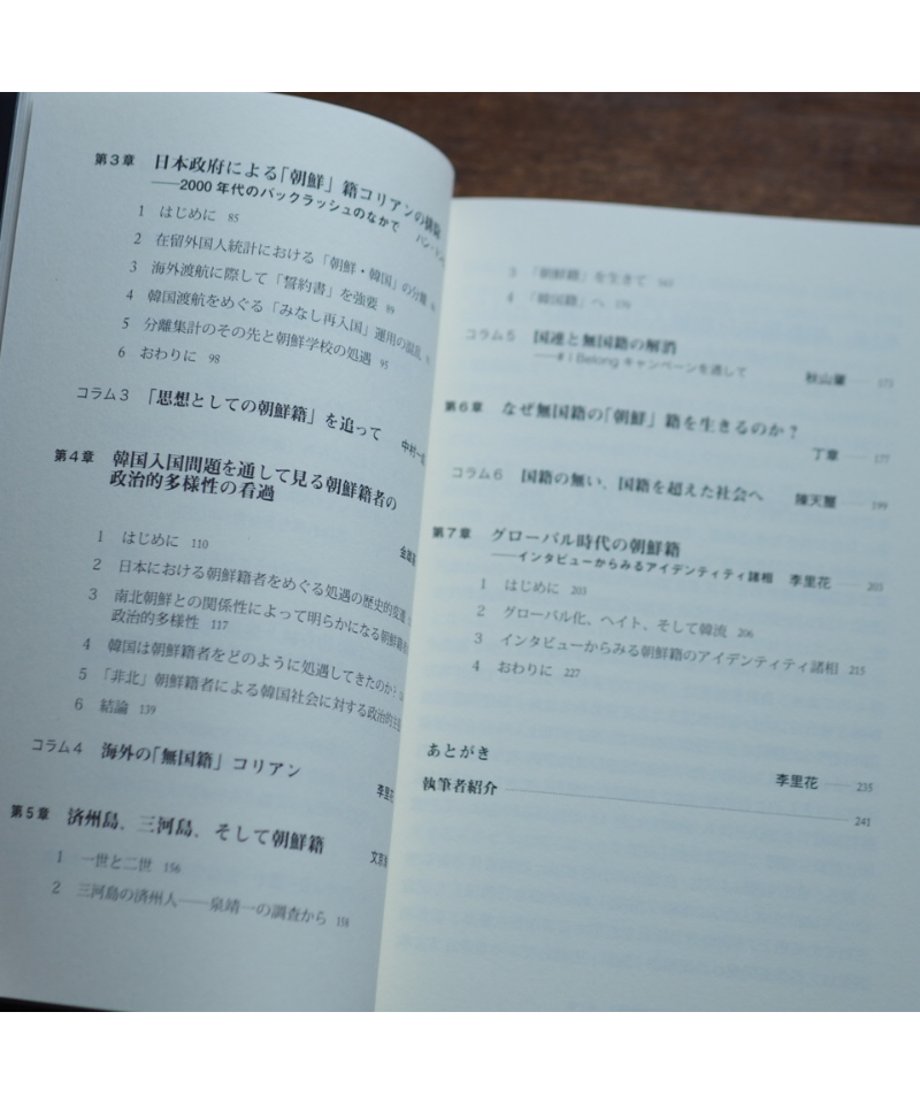 第3章 日本政府による「朝鮮」籍コリアンの排除
——2000年代のバックラッシュのなかで
1 はじめに 85
2 在留外国人統計における「朝鮮・韓国」の分離
3 海外渡航に際して「誓約書」を強要 89
4 韓国渡航をめぐる「みなし再入国」運用の混乱
5 分離集計のその先と朝鮮学校の処遇 95
6 おわりに 98
コラム3 「思想としての朝鮮籍」を追って 中村一
第4章 韓国入国問題を通して見る朝鮮籍者の
政治的多様性の看過
1 はじめに 110
2 日本における朝鮮籍者をめぐる処遇の歴史的変遷
3 南北朝鮮との関係性によって明らかになる朝鮮籍者
政治的多様性 117
4 韓国は朝鮮籍者をどのように処遇してきたのか?
5 「非北」朝鮮籍者による韓国社会に対する政治的主
6 結論 139
コラム4 海外の「無国籍」コリアン
李里花
第5章 済州島、三河島、そして朝鮮籍
文京
1 一世と二世 156
2 三河島の済州人——泉靖一の調査から 158
3 「朝鮮籍」を生きて 163
4 「韓国籍」へ 170
コラム5 国連と無国籍の解消
——#I Belongキャンペーンを通して 秋山肇 173
第6章 なぜ無国籍の「朝鮮」籍を生きるのか?
丁章 177
コラム6 国籍の無い、国籍を超えた社会へ 陳天璽 199
第7章 グローバル時代の朝鮮籍
——インタビューからみるアイデンティティ諸相 李里花 203
1 はじめに 203
2 グローバル化、ヘイト、そして韓流 206
3 インタビューからみる朝鮮籍のアイデンティティ諸相 215
4 おわりに 227
あとがき 李里花 235
執筆者紹介 241